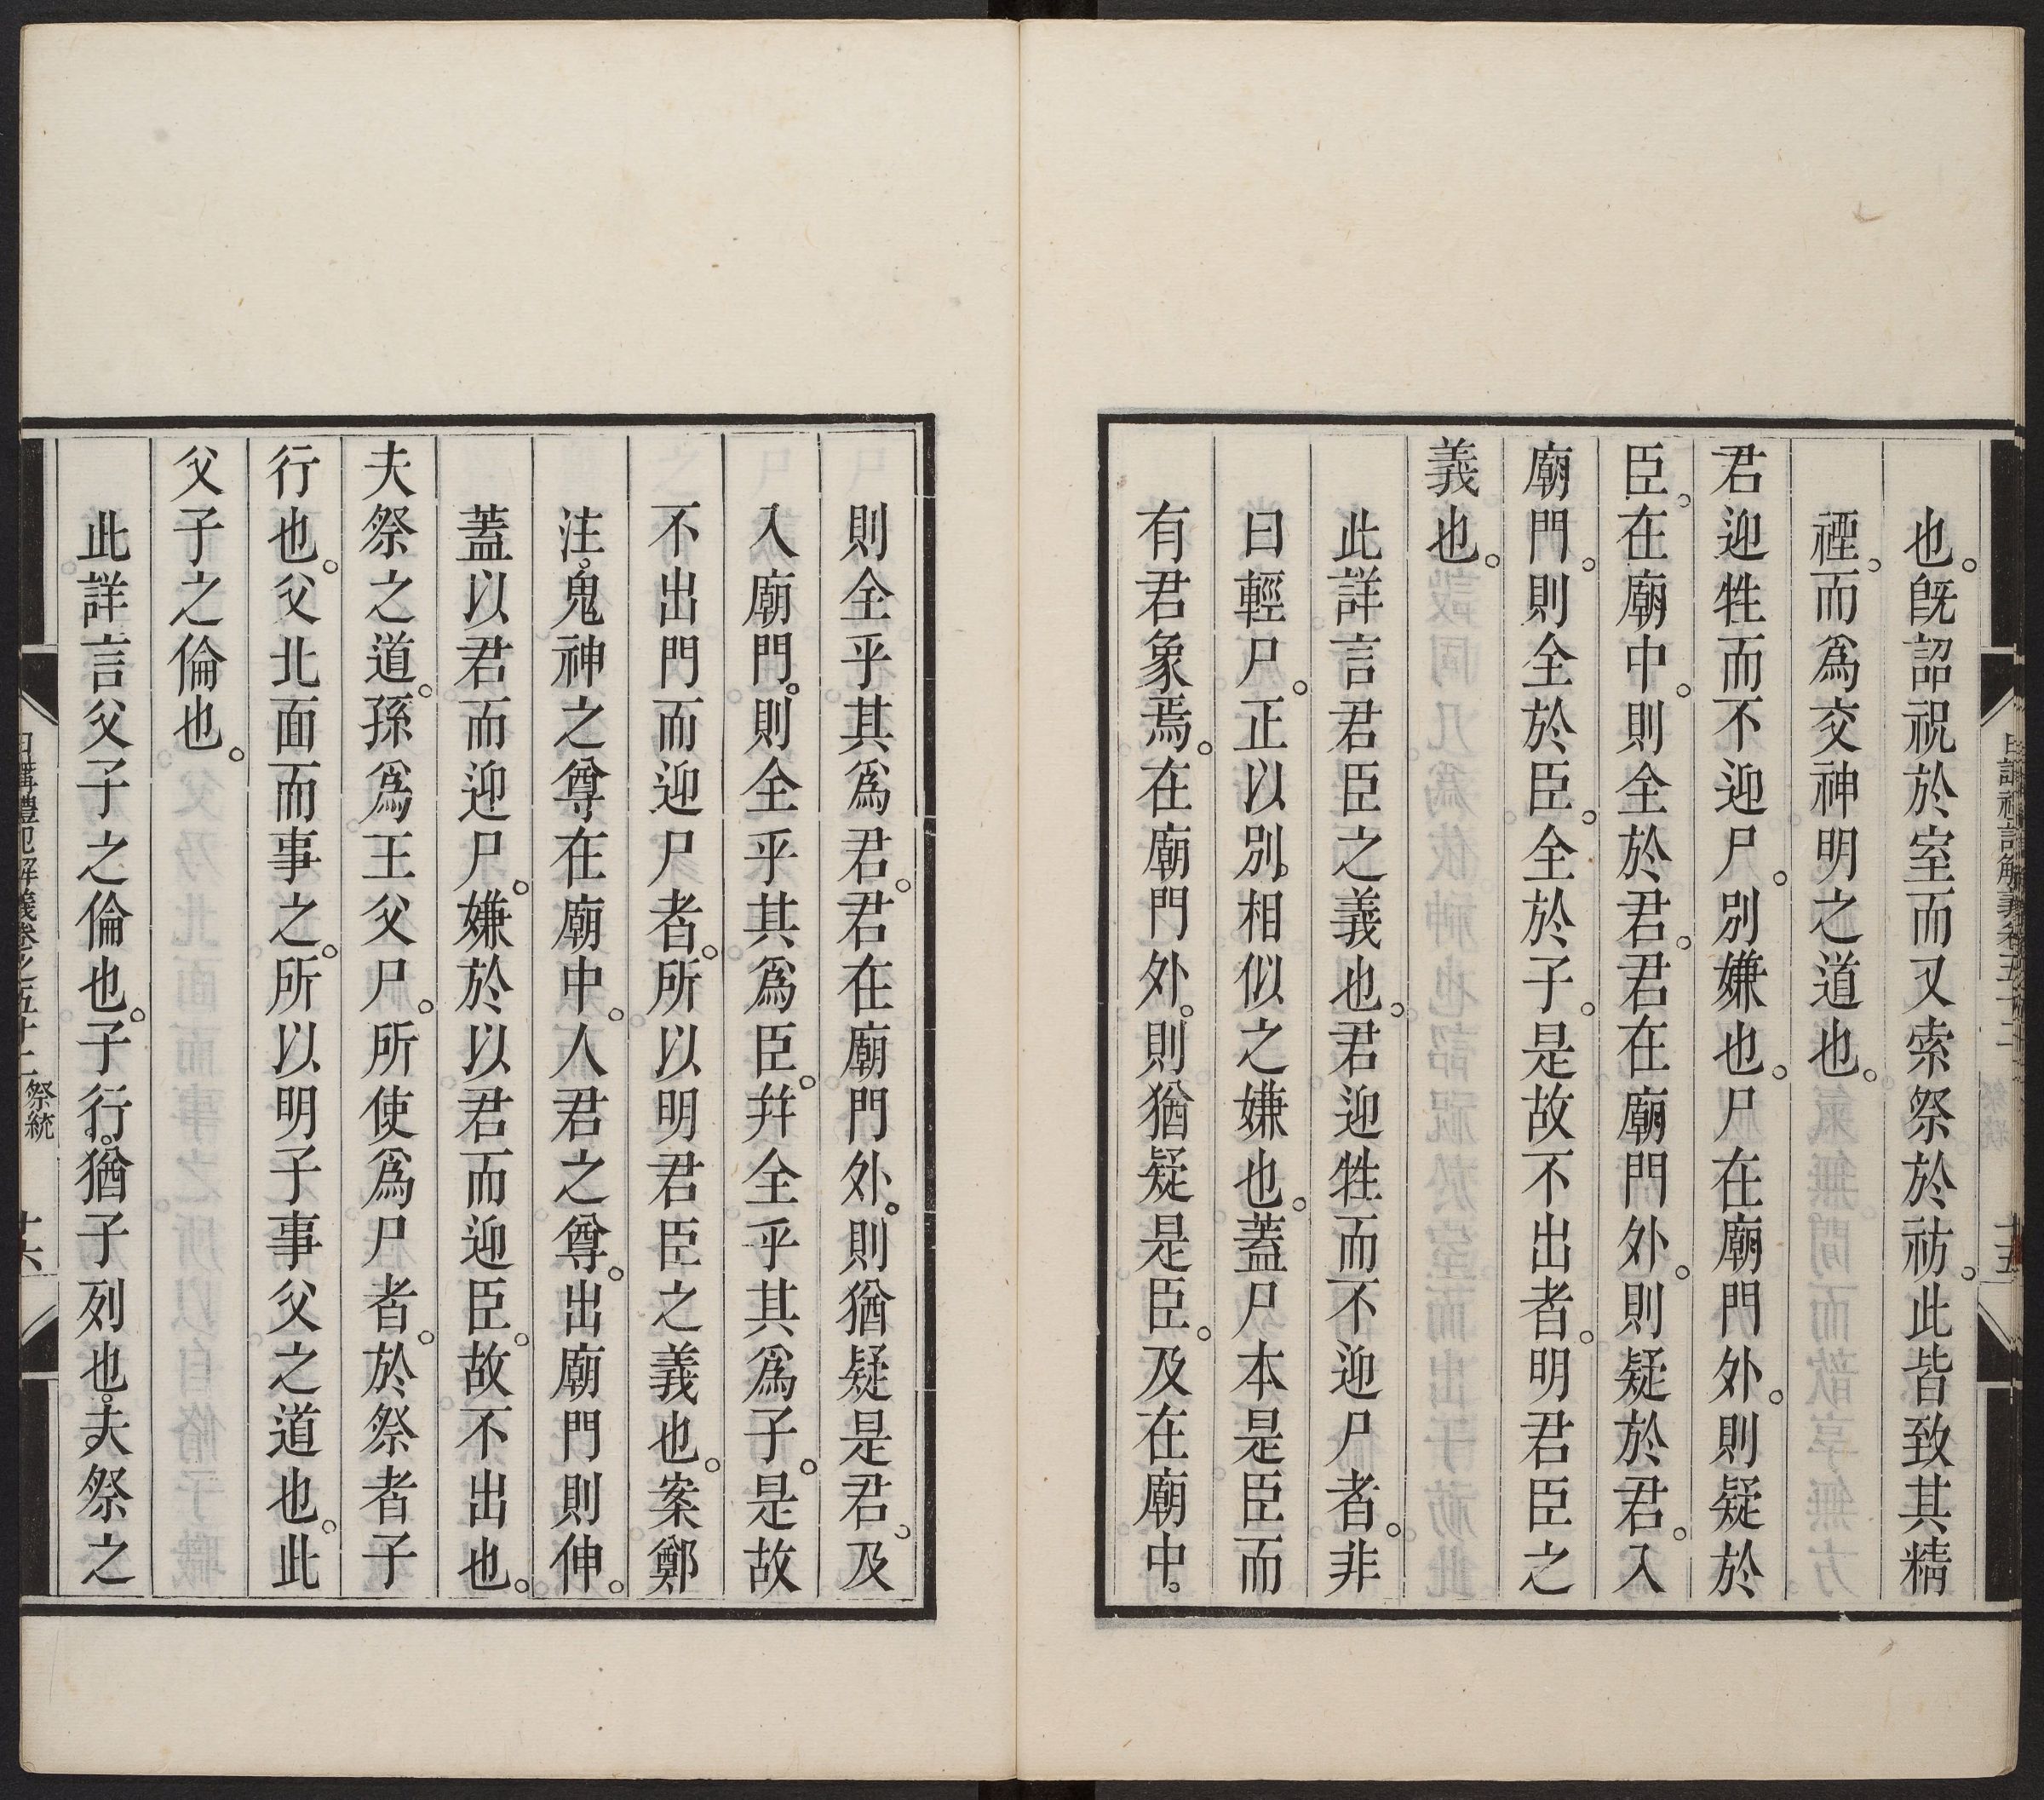 也。旣詔祝於室而又索祭於祊。此皆致其精
禋。而爲交神明之道也。
君迎牲而不迎尸。別嫌也。尸在廟門外。則疑於
臣。在廟中。則全於君。君在廟門外。則疑於君。入
廟門。則全於臣。全於子。是故不出者。明君臣之
義也。
此詳言君臣之義也。君迎牲而不迎尸者。非
曰輕尸。正以別。相似之嫌也。蓋尸本是臣而
有君象焉。在廟門外。則猶疑是臣。及在廟中。
則全乎其爲君。君在廟門外。則猶疑是君。及
入廟門。則全乎其爲臣。幷全乎其爲子。是故
不出門而迎尸者。所以明君臣之義也。案鄭
注。鬼神之尊在廟中。人君之尊。出廟門則伸。
蓋以君而迎尸。嫌於以君而迎臣。故不出也。
夫祭之道。孫爲王父尸。所使爲尸者。於祭者子
行也。父北面而事之。所以明子事父之道也。此
父子之倫也。
此詳言父子之倫也。子行。猶子列也。夫祭之
日講禮記解義卷之五十二 祭統 十六